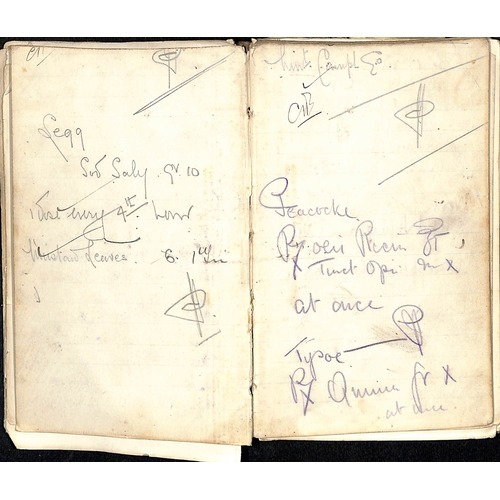 Legg
Sod Saly. gr. 10
every 4th hour
Mustard Leaves 6. 1 tin
Lint. Camph Co
Peacocke
Rx Olei Ricin ℥T
Tinct Opi m x
at once
Typoe
Rx Quinine gr x
at once